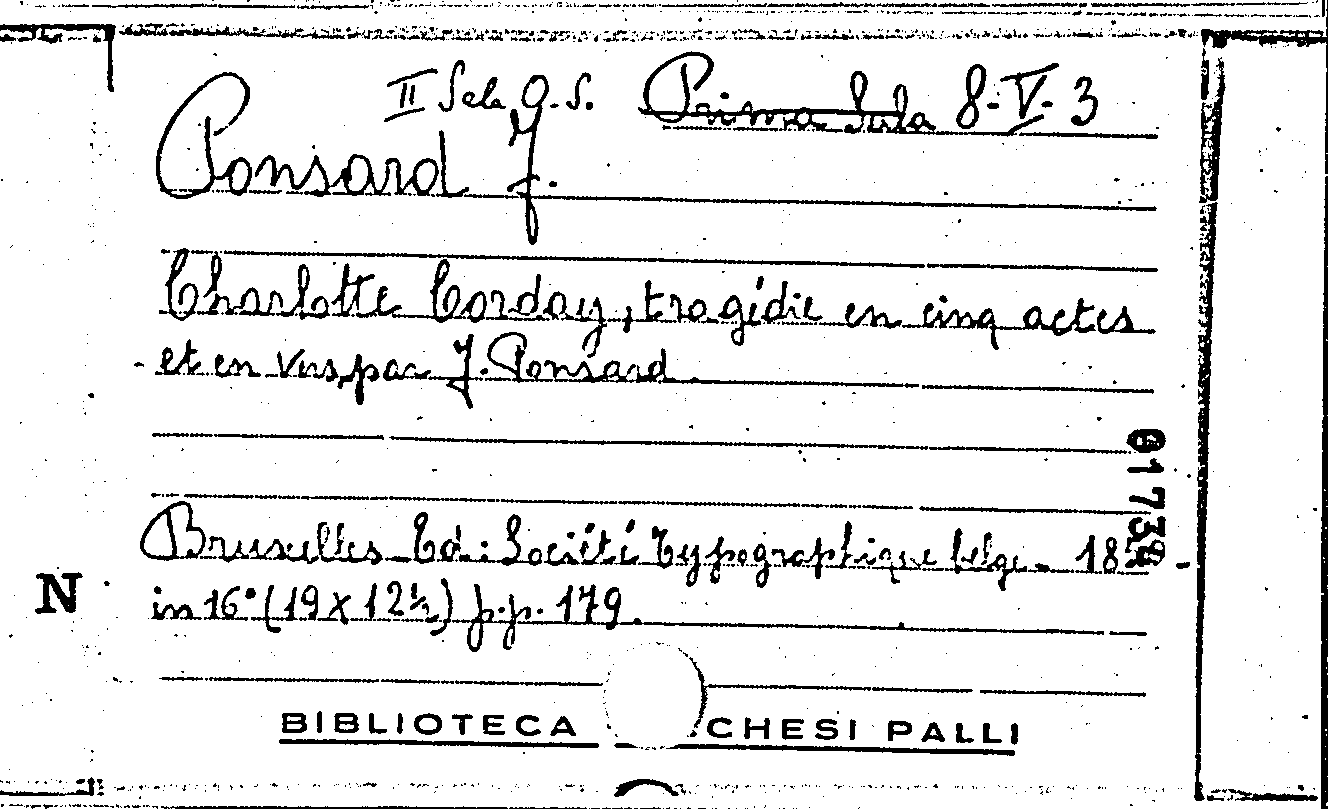 II Sala Q.S. Prima Sala 8-V-3
Ponsard F.
Charlotte Corday, tragédie en cinq actes
- et en vers, par F. Ponsard.
Bruxelles Ed: Société Typographique belge - 185 -
in 16° (19 x 12½) p.p. 179.
01739
N
BIBLIOTECA CHESI PALLI